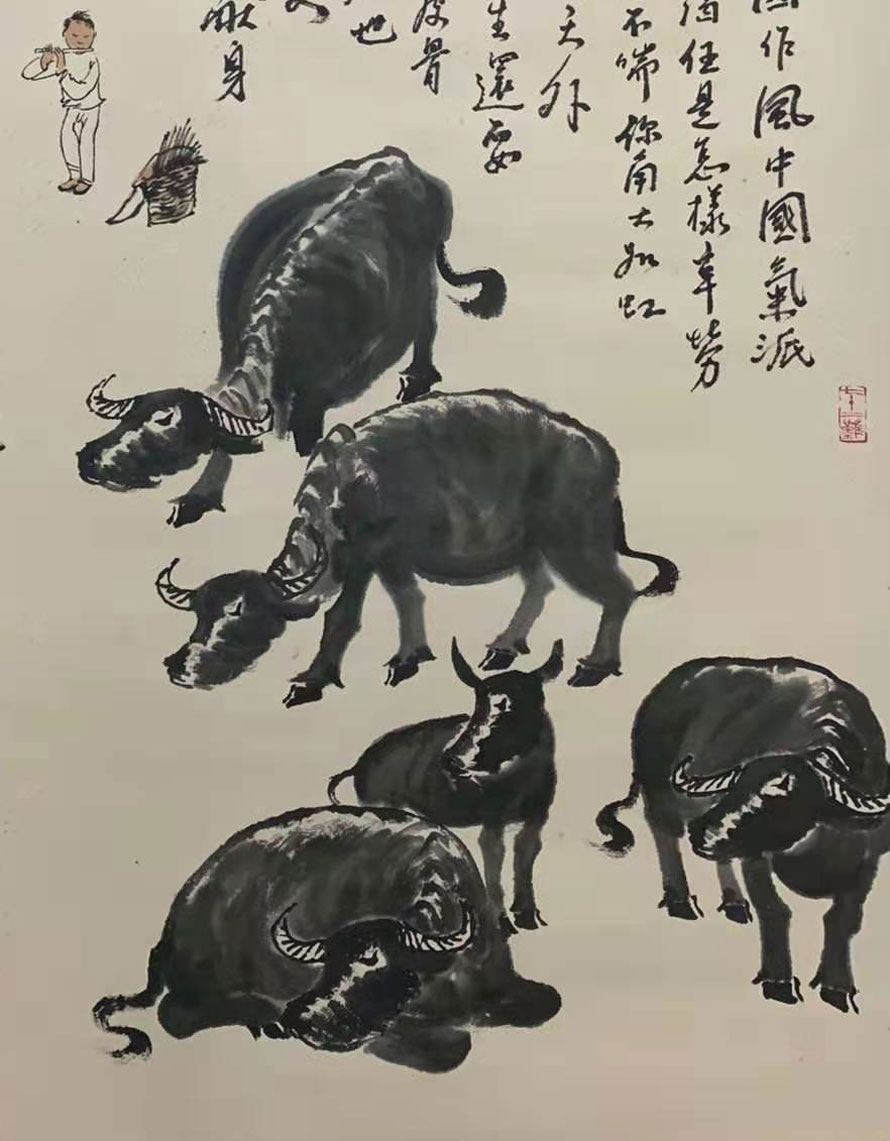 作風中國氣派
任是怎樣辛勞
不喘你角大如虹
天外
生還要
皮骨
也
獻身